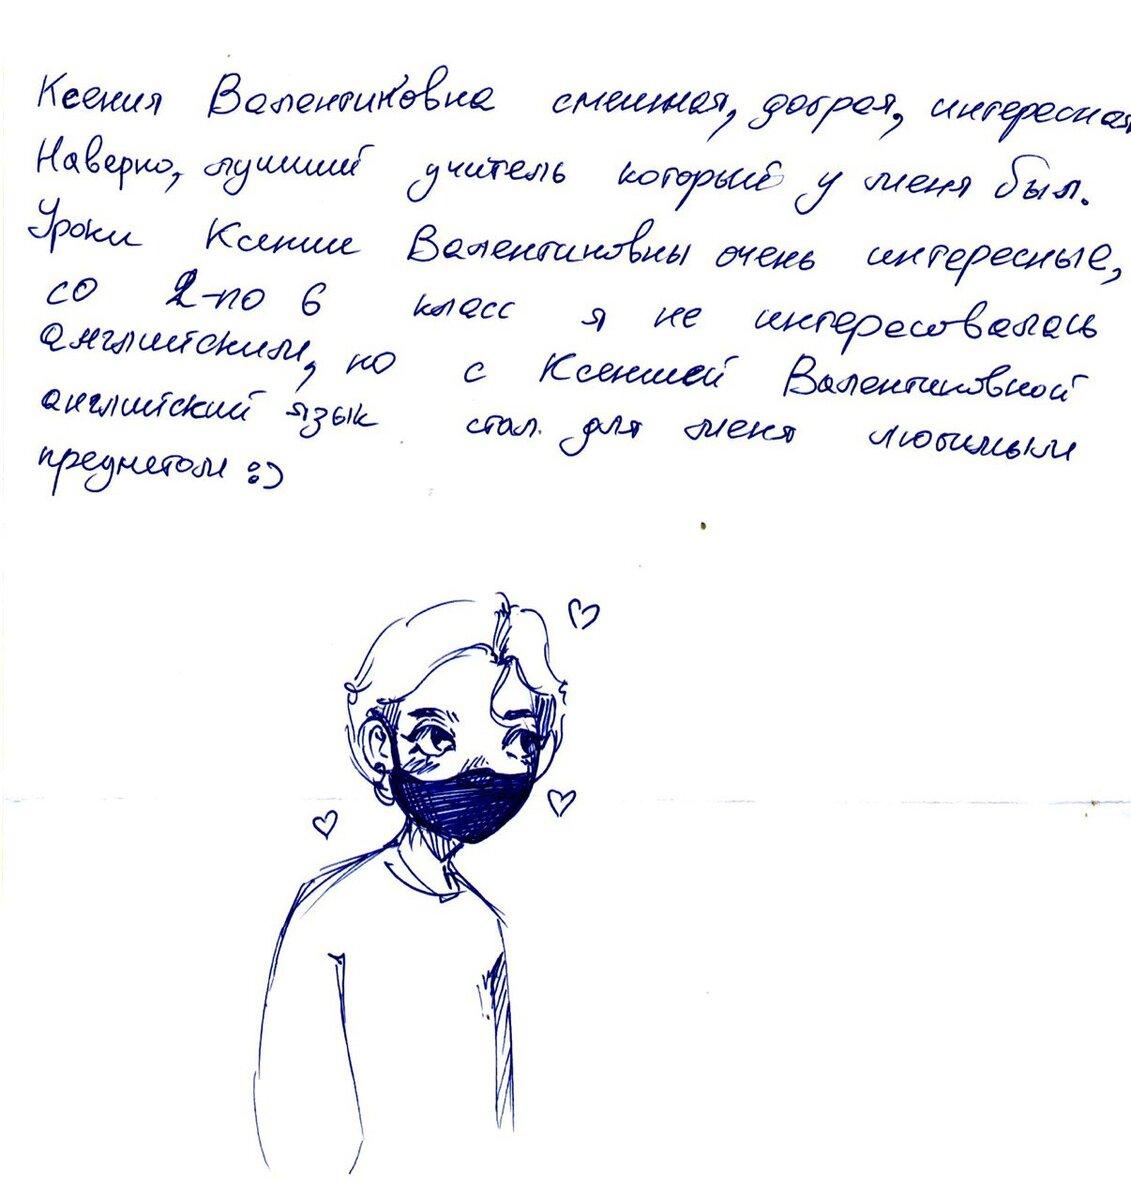 Ксения Валентиновна смешная, добрая, интересная
Наверно, лучший учитель который у меня был.
Уроки Ксении Валентиновны очень интересные,
со 2-по 6 класс я не интересовалась
английским, но с Ксенией Валентиновной
английский язык стал для меня любимым
предметом :)